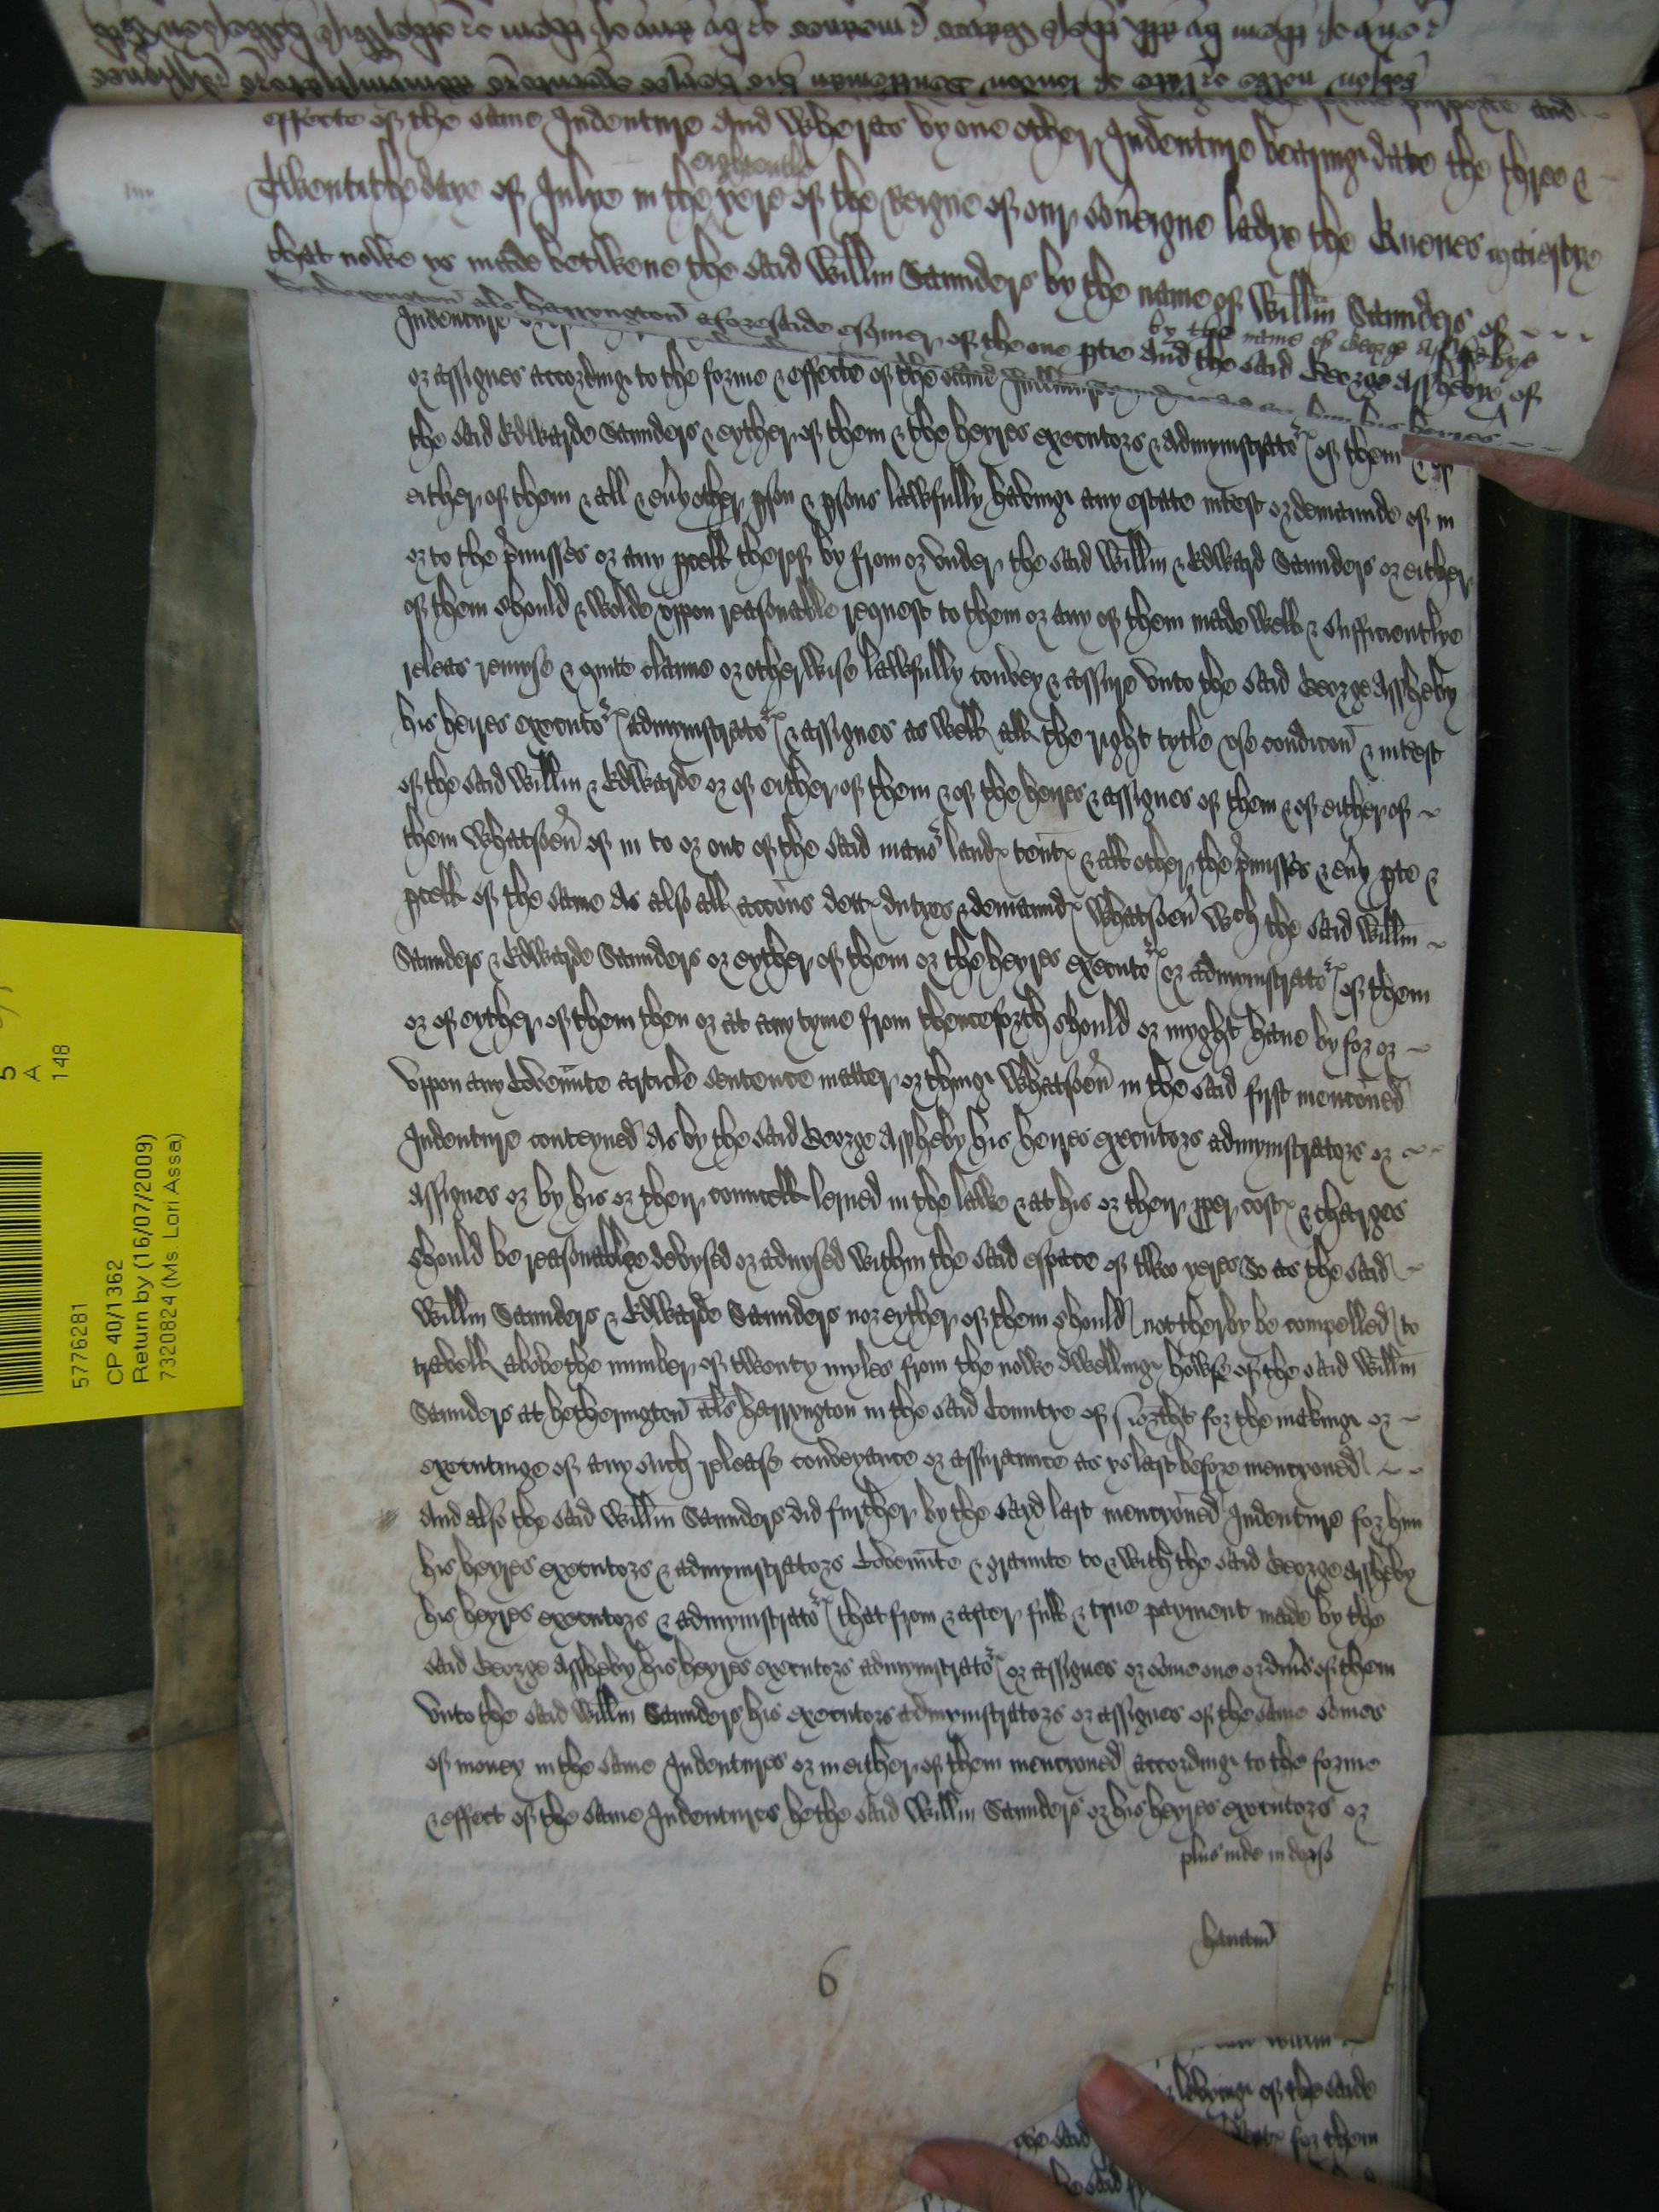 effecte of the same Indenture And Wheras by one other Indenture bearinge date the three &
eightenth
Twentithe daye of Julye in the yere of the Reigne of our Sov'eigne ladye the Quenes maiestye
that nowe ys made betwene the said Willm Saunders by the name of Willm Saunders of
by the name of George Assheby
als harryngton aforesaide esquier of the one ptie And the said George Assheby of
Indenture
or assignes accordinge to the forme & effecte of the same
the said Edwarde Saunders & eyther of them & the heyres executors & admynistrato's of them & of
either of them & all & ev'y other pson & psons lawfully havinge any estate int'est or demaunde of in
or to the p'misses or any pcell therof by from or under the said Willm & Edward Saunders or either
of them should & wolde uppon reasonable request to them or any of them made well & sufficientlye
releas remyse & quite clayme or otherwise lawfully convey & assure unto the said George Assheby
his heires executo's admynistrato's & assignes as well all the right tytle use condicon & int'est
of the said Willm & Edwarde or of either of them & of the heyres & assignes of them & of either of
them whatsoev' of in to or out of the said mano' lands tents & all other the p'misses & ev'y pte &
pcell of the same As also all accons detts dutyes & demaunds whatsoev' wch the said Willm
Saunders & Edwarde Saunders or eyther of them or the heyres executo's or admynistrato's of them
or of eyther of them then or at any tyme from thenceforth should or myght have by for or
uppon any Coven'nte article sentence matter or thinge whatsoev' in the said fyrst menconed
Indenture conteyned As by the said George Assheby his heires executors admynistrators or
assignes or by his or their councell lerned in the lawe & at his or their pper costs & charges
should be reasonablye devysed or advysed within the said espace of two yeres So as the said
Willm Saunders & Edwarde Saunders nor eyther of them should not therby be compelled to
travell above the nomber of twenty myles from the nowe dwellinge howse of the said Willm
Saunders at hetherington als harryngton in the said Countye of Northt for the makinge or
executinge of any such release conveyance or assuraunce as ys last before mencyoned
And also the said Willm Saunders did further by the sayd last mencyoned Indenture for him
his heyres executors & admynistrators Coven'nte & graunte to & with the said George Assheby
his heyres executors & admynistrato's that from & after full & true payment made by the
said George Assheby his heyres executors admynistrato's or assignes or some one or div's of them
unto the said Willm Saunders his executors admynistrators or assignes of the same somes
of money in the same Indentures or in either of them mencyoned accordinge to the forme
& effect of the same Indentures he the said Willm Saunders or his heyres executors or
plus inde in dorso
6
5
A
148
5776281
CP 40/1362
Return by (16/07/2009)
7320824 (Ms. Lori Assa)
of the saide
for them